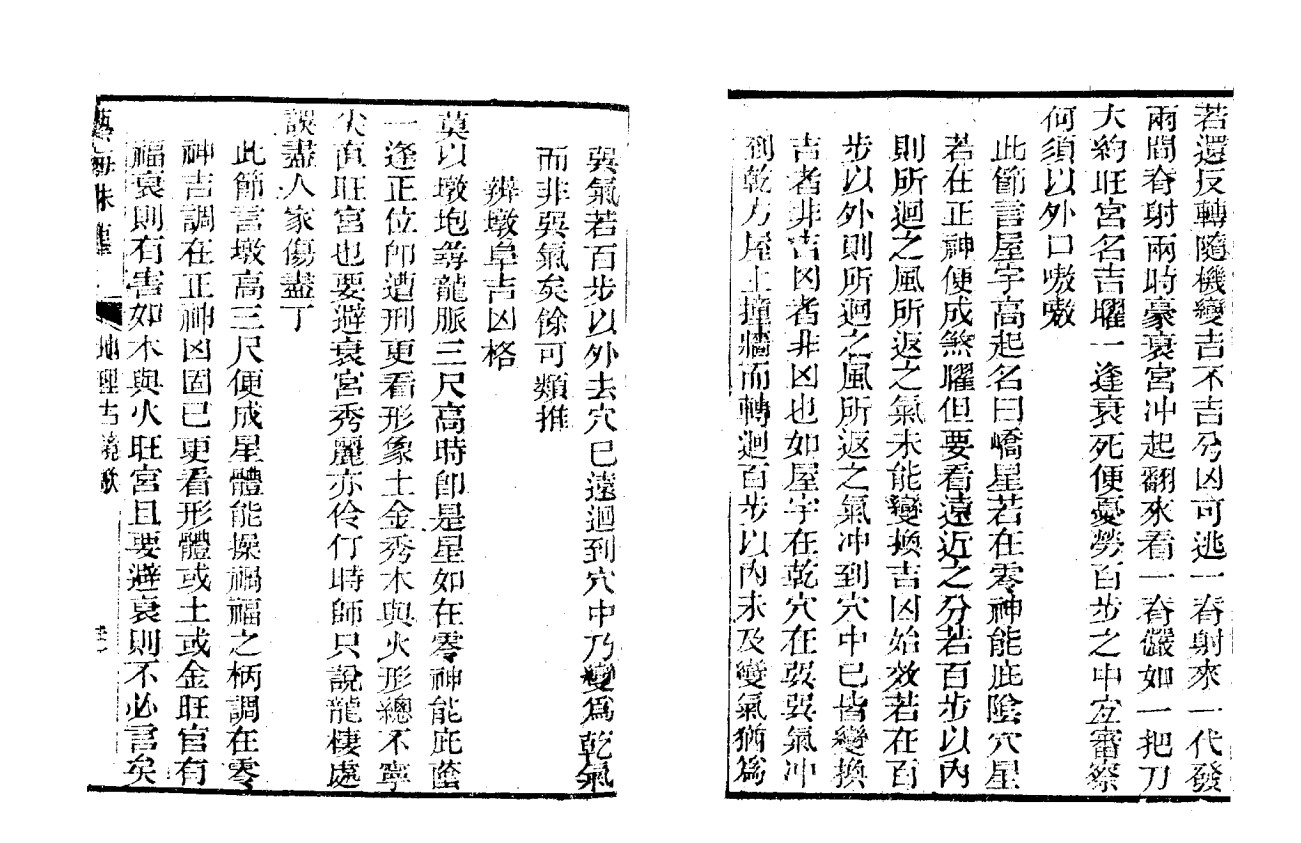 若還反轉隨機變吉不吉兮凶可逃一脊射來一代發
兩間脊射兩時豪衰宮冲起翻來看一脊儼如一把刀
大約旺宮名吉曜一逢衰死便憂勞百步之中宜審察
何須以外口嗷嗷
此節言屋宇高起名曰嶠星若在零神能庇陰穴星
若在正神便成煞曜但要看遠近之分若百步以內
則所迴之風所返之氣未能變換吉凶始效若在百
步以外則所迴之風所返之氣冲到穴中已皆變換
吉者非吉凶者非凶也如屋宇在乾穴在巽巽氣冲
到乾方屋上撞牆而轉迴百步以內未及變氣猶爲
巽氣若百步以外去穴已遠迴到穴中乃變爲乾氣
而非巽氣矣餘可類推
辨墩阜吉凶格
莫以墩垉尋龍脈三尺高時卽是星如在零神能庇蔭
一逢正位卽遭刑更看形象土金秀木與火形總不寧
尖直旺宮也要避衰宮秀麗亦伶仃時師只說龍棲處
誤盡人家傷盡丁
此節言墩高三尺便成星體能操禍福之柄調在零
神吉調在正神凶固已更看形體或土或金旺宮有
福衰則有害如木與火旺宮且要避衰則不必言矣
藝海珠塵
地理古鏡歌